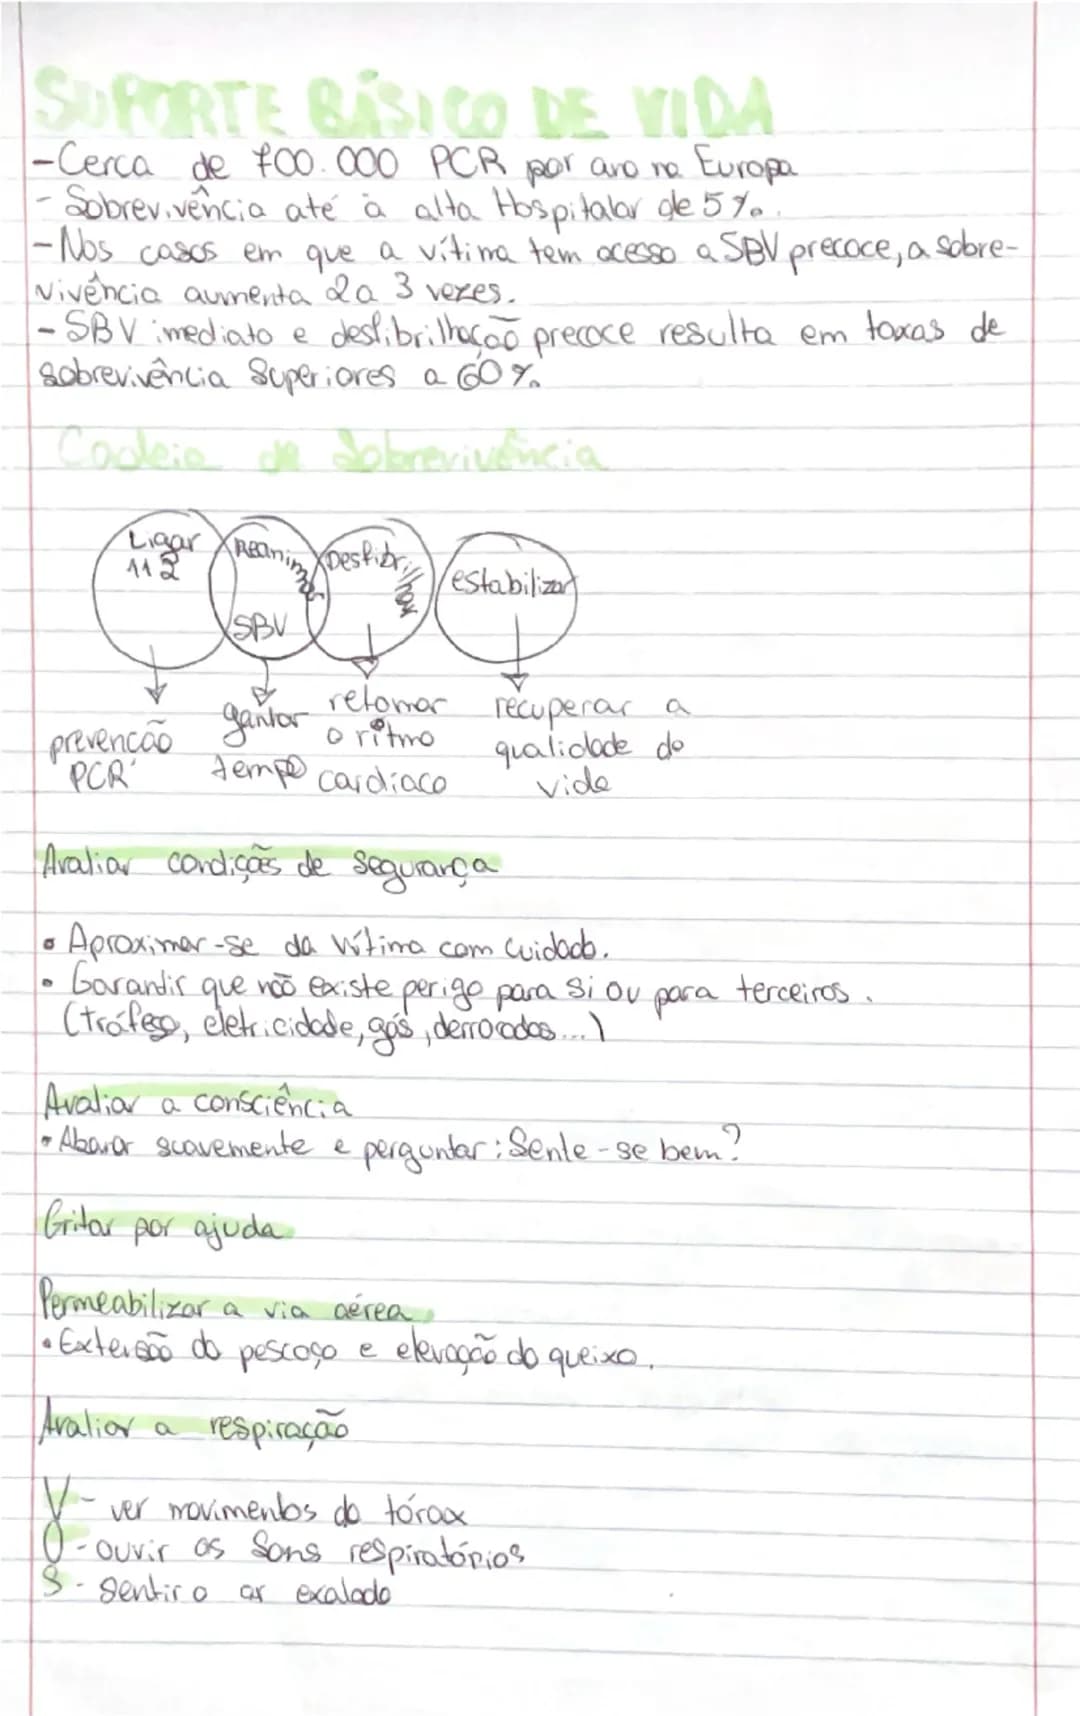 SUPORTE BÁSICO DE VIDA
- Cerca de 700.000 PCR por ano na Europa
- Sobrevivência até à alta Hospitalar de 5%.
- Nos casos em que a vítima tem acesso a SBV precoce, a sobre-
vivência aumenta 2 a 3 vezes.
- SBV imediato e desfibrilhação precoce resulta em taxas de
sobrevivência superiores a 60%.
Cadeia de Sobrevivência
Ligar 112
Reanimar SBV
Desfibrilhar
estabilizar
prevenção PCR
ganhar tempo
retomar o ritmo cardíaco
recuperar a qualidade de vida
Avaliar condições de Segurança
• Aproximar-se da vítima com cuidado.
• Garantir que não existe perigo para si ou para terceiros.
(tráfego, eletricidade, gás, derrocadas...)
Avaliar a consciência
• Abanar suavemente e perguntar: Sente-se bem?
Gritar por ajuda
Permeabilizar a via aérea
• Extensão do pescoço e elevação do queixo.
Avaliar a respiração
V - ver movimentos do tórax
O - ouvir os Sons respiratórios
S - sentir o ar exalado